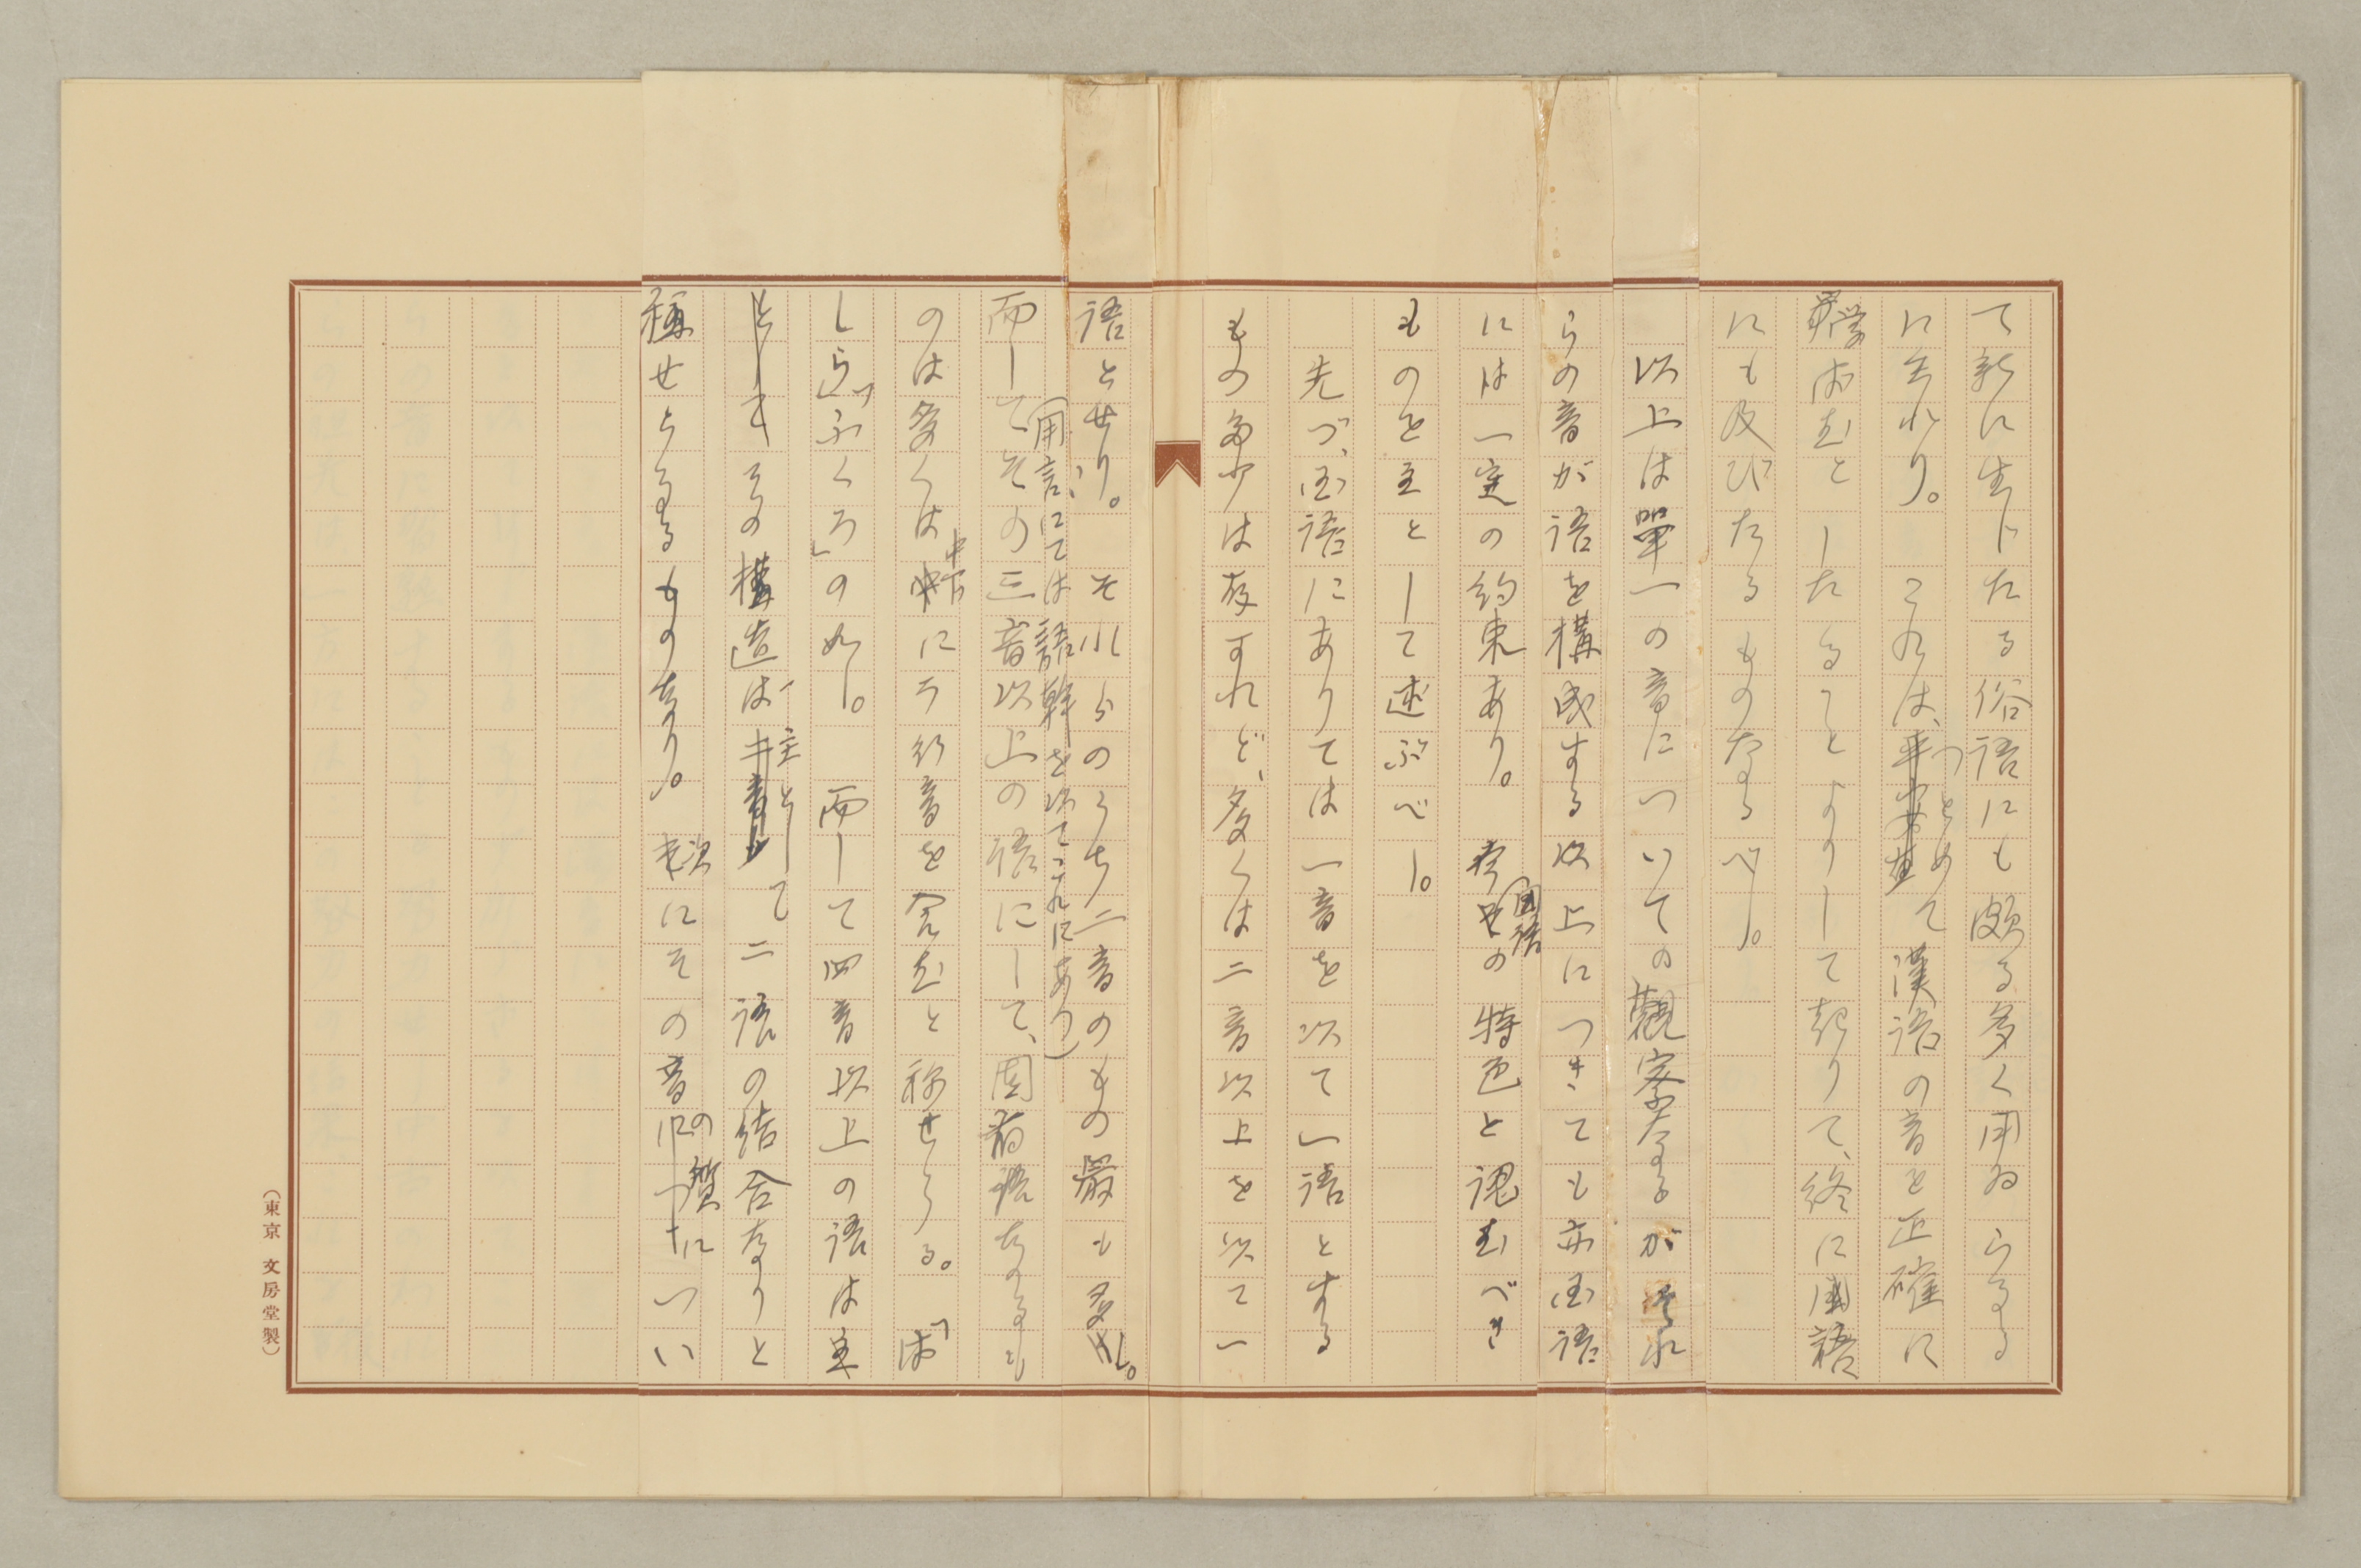 て新に生じたる俗語にも頗る多く用ゐらるる
に至れり。これは、つとめて漢語の音を正確に
学ばむとしたることよりして起りて、終に国語
にも及びたるものなるべし。
以上は單一の音についての觀察なるがそれ
らの音が語を構成する以上につきても亦国語
には一定の約束あり。国語の特色と認むべき
ものを主として述ぶべし。
先づ、国語にありては一音を以て一語とする
もの多少は存すれど、多くは二音以上を以て一
語とせり。それらのうち二音のもの最も多し。
(用言にては語幹を以てこれにあつ)
而してその三音以上の語にして、固有語なるも
のは多くは中下にラ行音を含むと称せらる。「は
しら」「ふくろ」の如し。而して四音以上の語は主
その構造は主として二語の結合なりと
称せらるるものなり。次にその音の質につい
(東京 文房堂製)